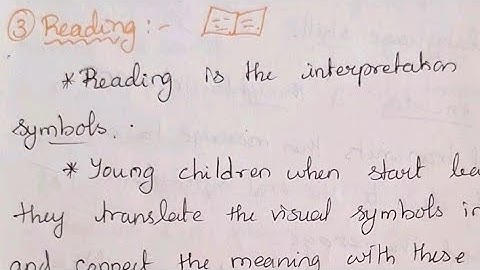 ③ Reading :-
* Reading is the interpretation
symbols.
* Young children when start lea
they translate the visual symbols in
and connect the meaning with these